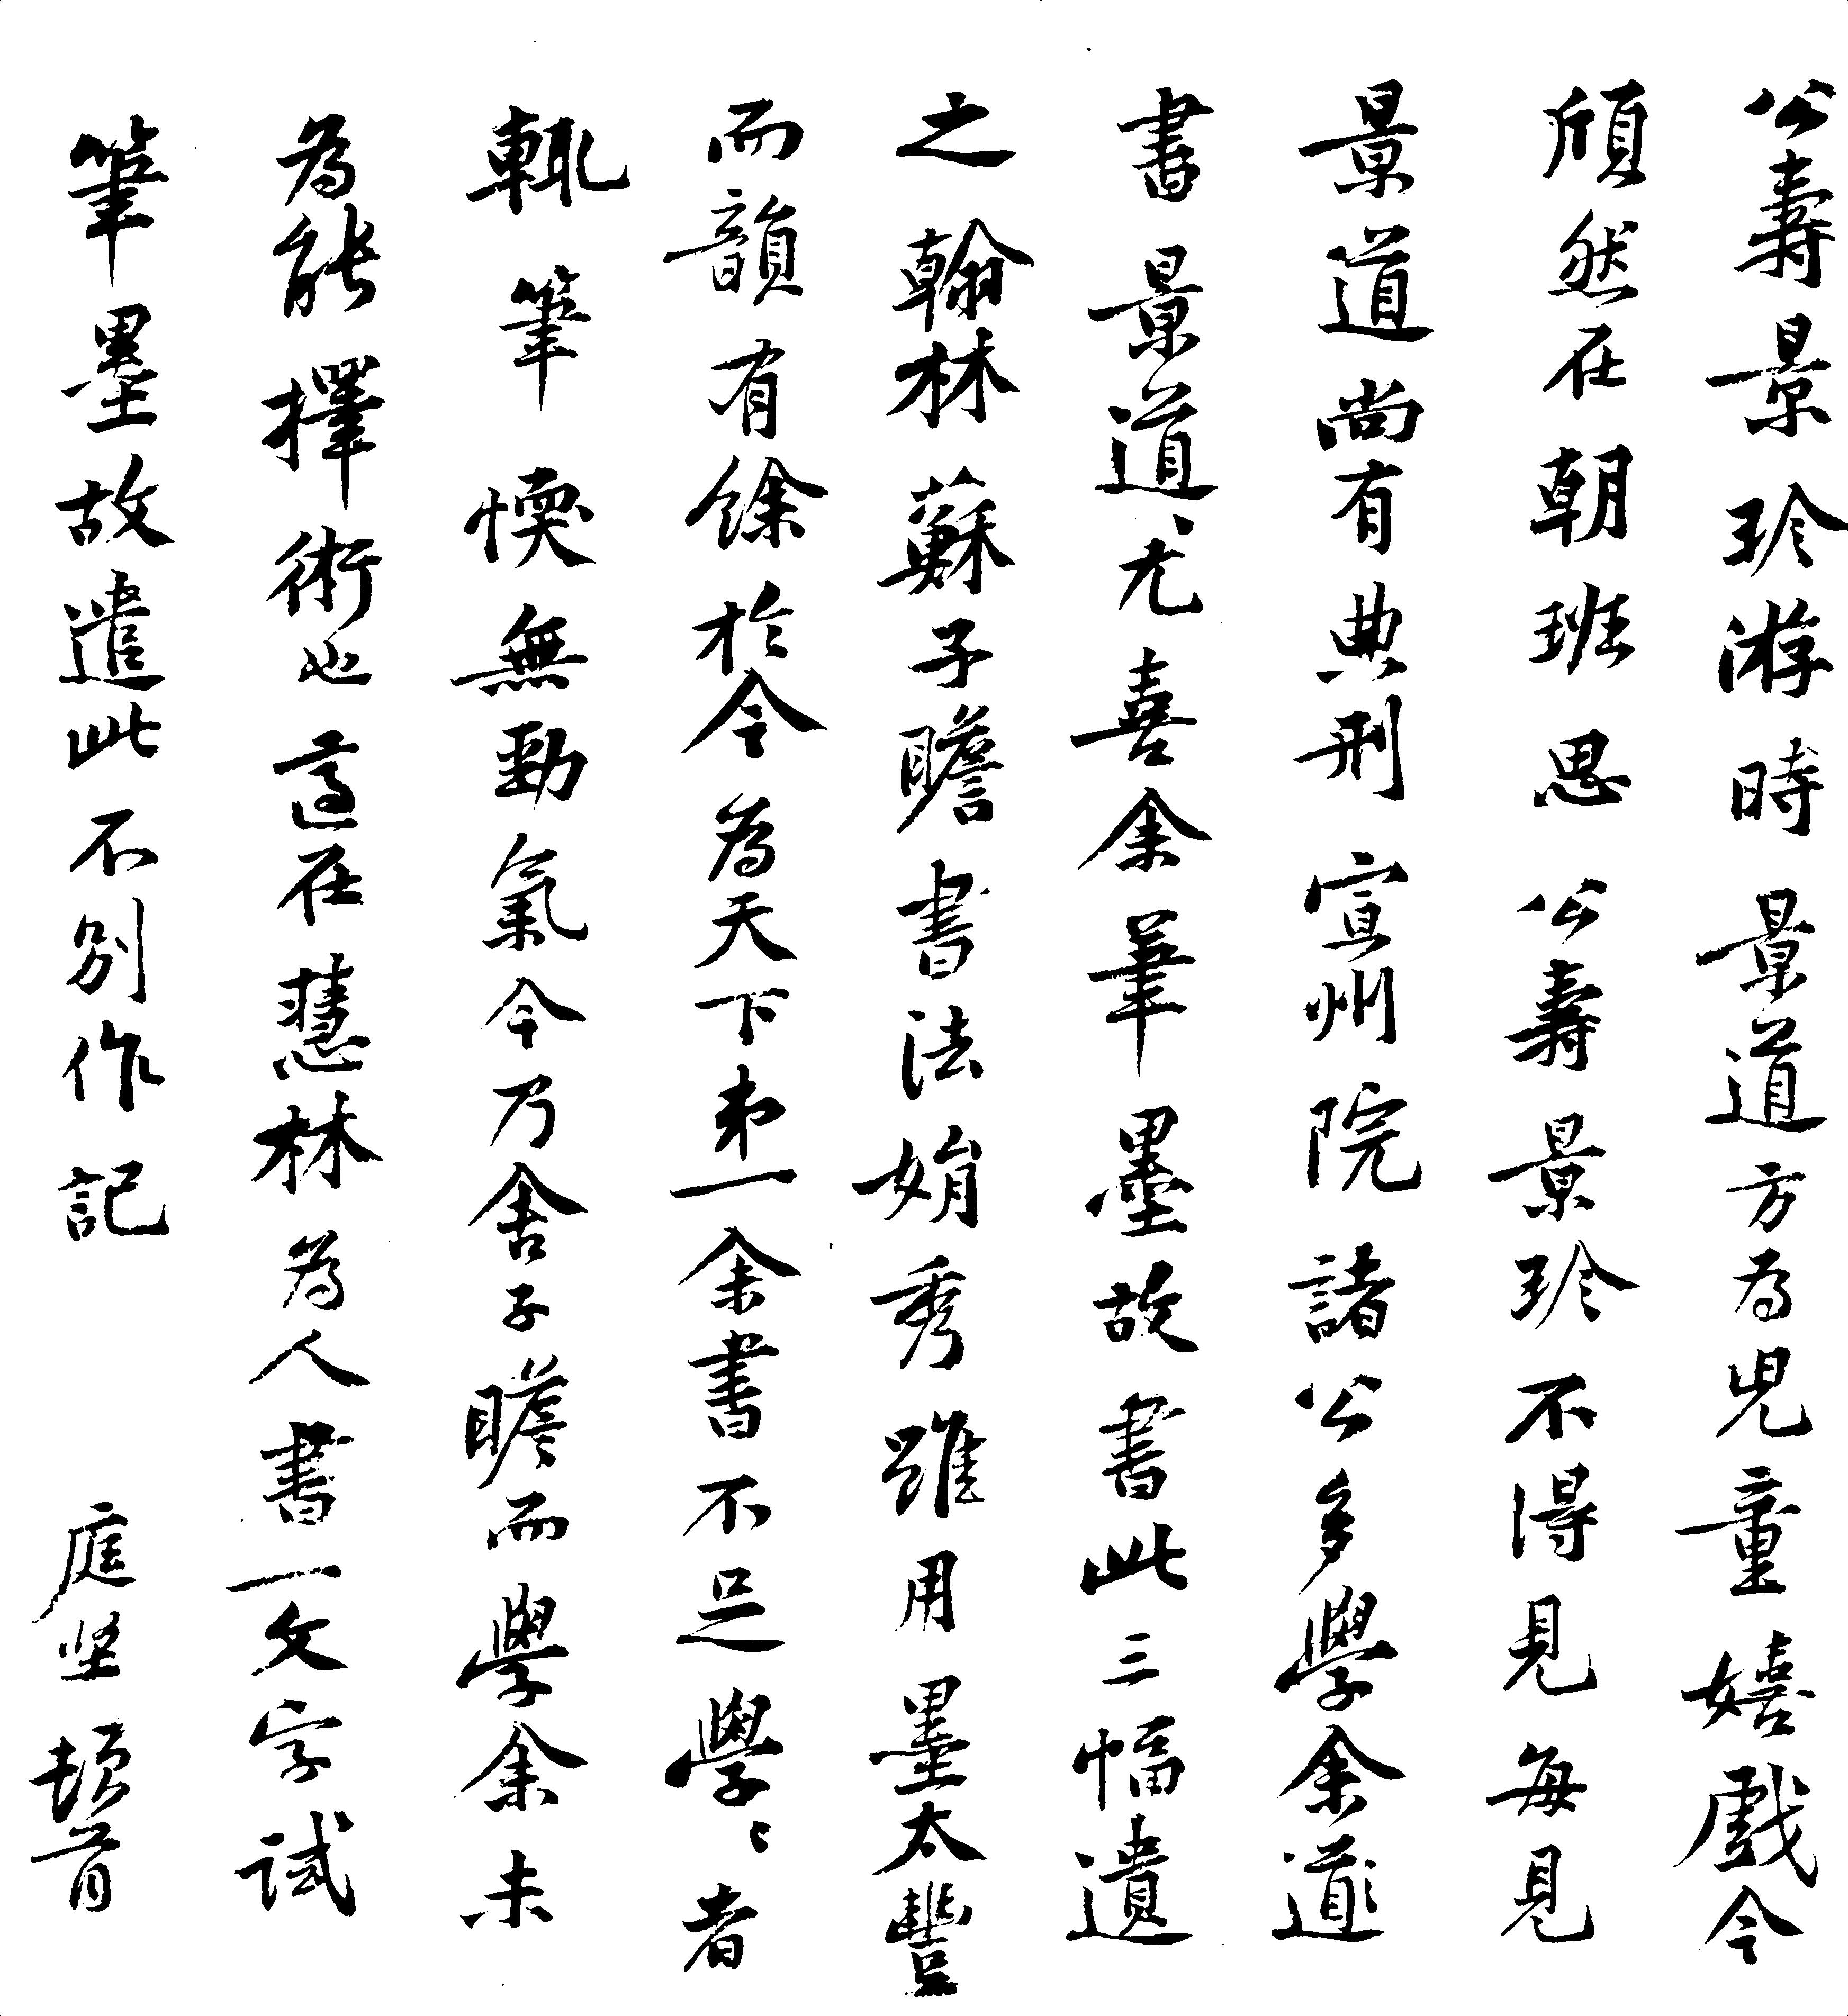 公壽景珍游時景道方為兒童嬉戲今
頎然在朝班思公壽景珍不得見每見
景道尚有典刑宣州院諸公多學余道
書景道尤喜余筆墨故書此三幅遺
之翰林蘇子瞻書法娟秀雖用墨太豐
而韻有餘於今為天下第一余書不足學學者
輒筆愞無勁氣今乃舍子瞻而學余未
為能擇術也適在慧林為人書一文字試
筆墨故遣此不別作記
庭堅頓首